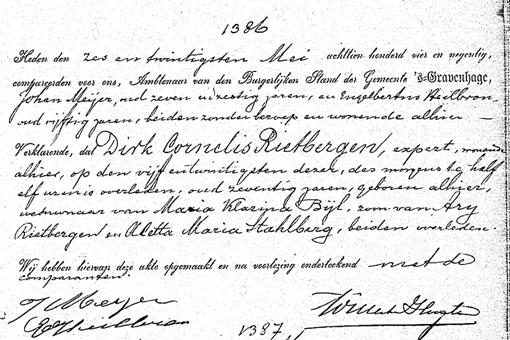 1386
Heden den zes en twintigsten Mei achttien honderd vier en negentig,
compareerden voor ons, Ambtenaar van den Burgerlijken Stand der Gemeente 's-Gravenhage,
Johan Meijer, oud zeven en zestig jaren, en Engelbertus Heilbron
oud vijftig jaren, beiden zonder beroep en wonende alhier
Verklarende, dat Dirk Cornelis Rietbergen, expert, wonende
alhier, op den vijf en twintigsten dezer, des morgens te half
elf uren is overleden, oud zeventig jaren, geboren alhier,
weduwnaar van Maria Klazina Bijl, zoon van Ary
Rietbergen en Aletta Maria Stahlberg, beiden overleden.
Wij hebben hiervan deze akte opgemaakt en na voorlezing onderteekend met de
comparanten.
J Meyer
1387